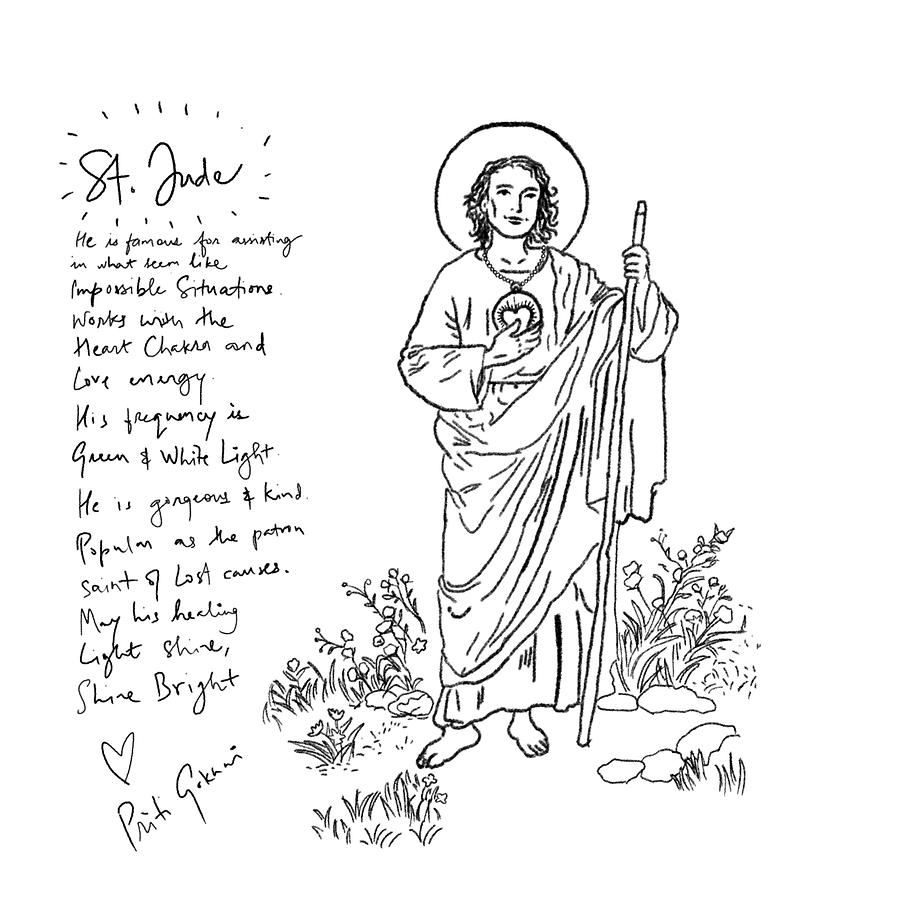 St. Jude
He is famous for assisting
in what seem like
Impossible Situations.
Works with the
Heart Chakra and
Love energy.
His frequency is
Green & White Light.
He is gorgeous & kind.
Popular as the patron
Saint of Lost causes.
May his healing
Light Shine,
Shine Bright
Priti Gokhani